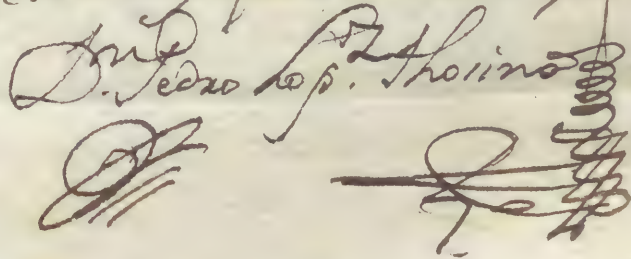 Dn. Pedro Lopz. Thorino